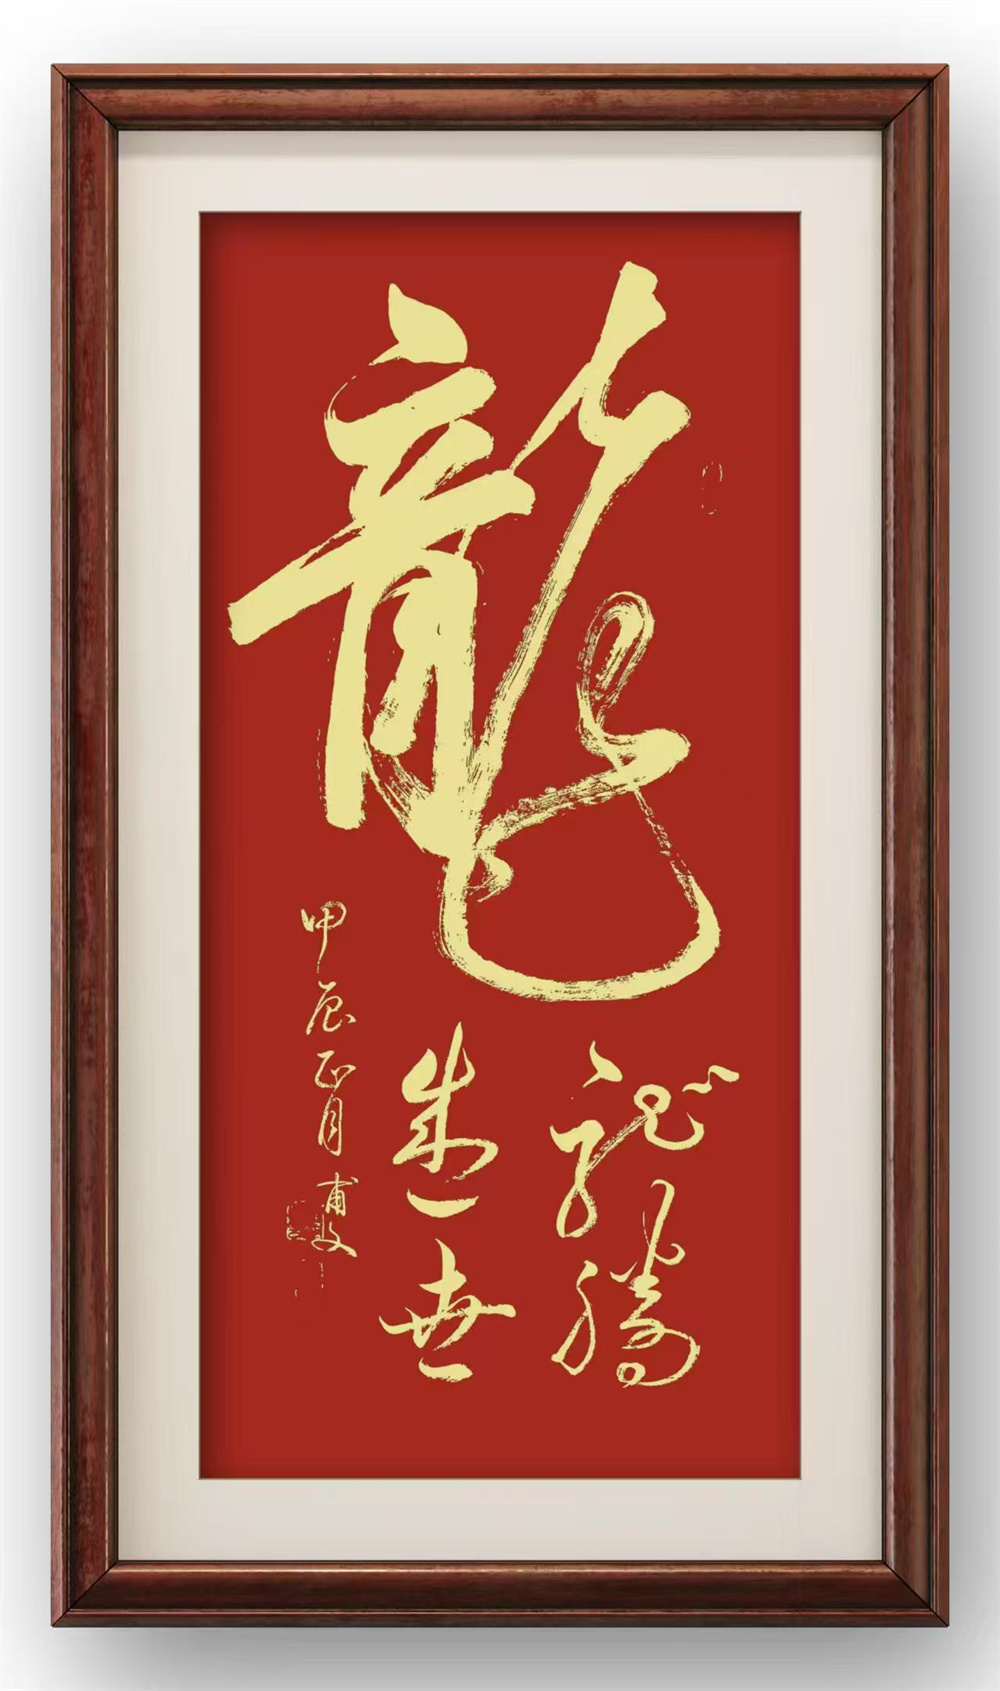 龍
龍騰
盛世
甲辰正月甫文